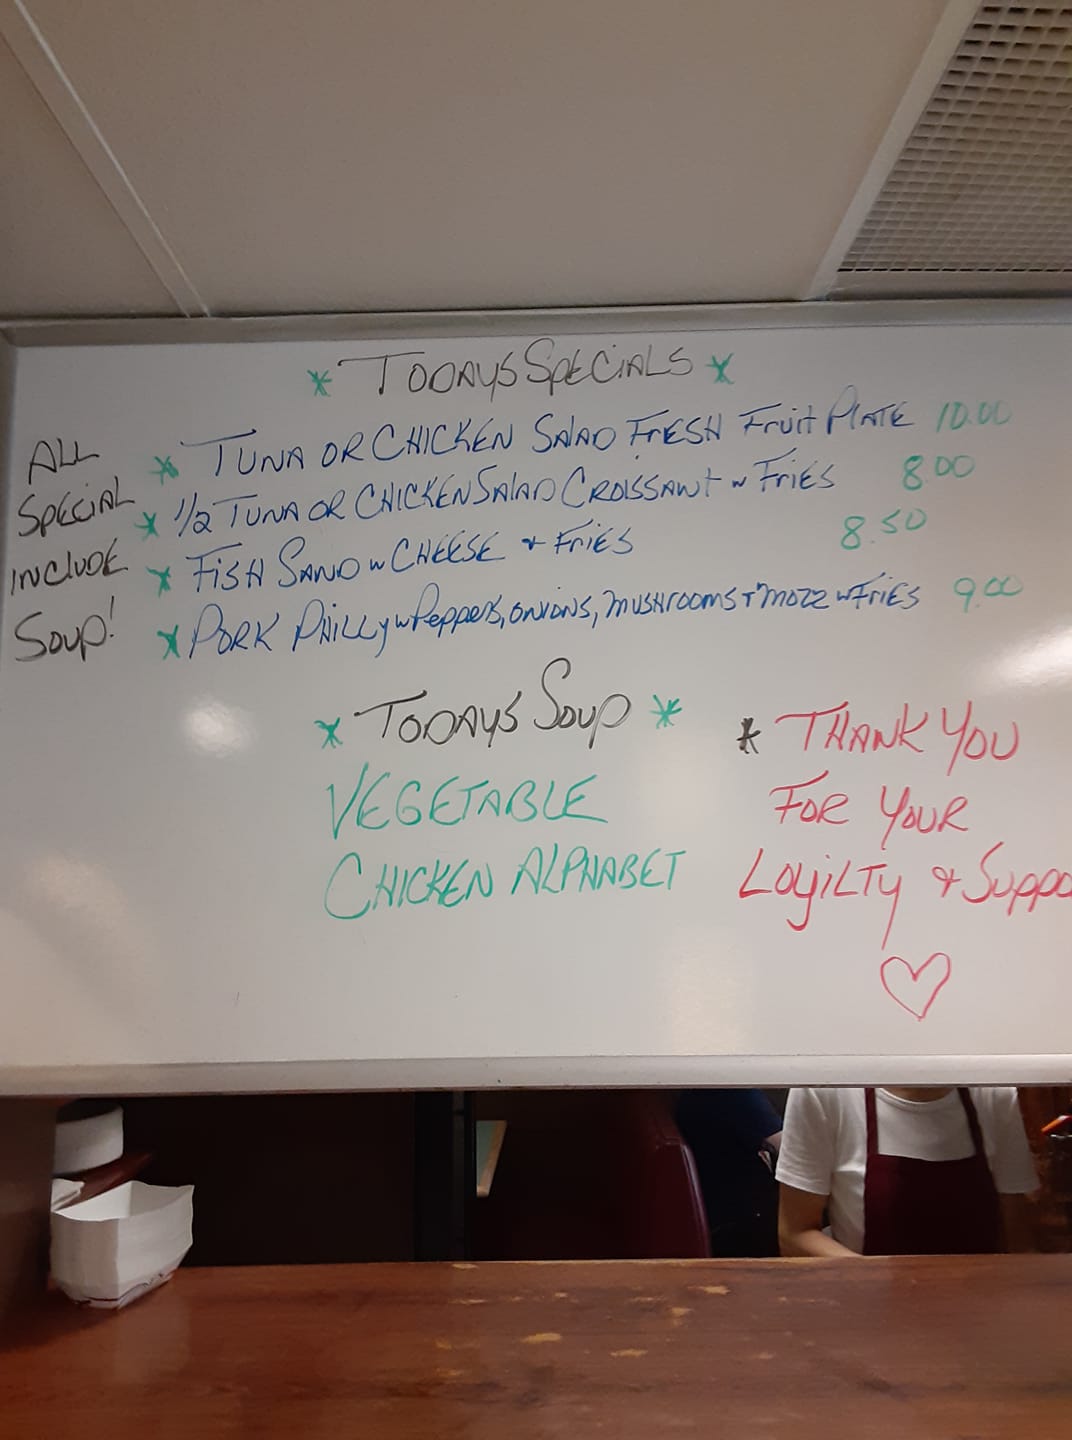 * TODAYS SPECIALS *
ALL
SPECIAL
INCLUDE
SOUP!
* TUNA OR CHICKEN SALAD FRESH FRUIT PLATE 10.00
* 1/2 TUNA OR CHICKEN SALAD CROISSANT w FRIES 8.00
* FISH SAND w CHEESE + FRIES 8.50
* PORK PHILLY w PEPPERS, ONIONS, MUSHROOMS + MOZZ w FRIES 9.00
* TODAYS SOUP *
VEGETABLE
CHICKEN ALPHABET
* THANK YOU
FOR YOUR
LOYILTY + SUPPO